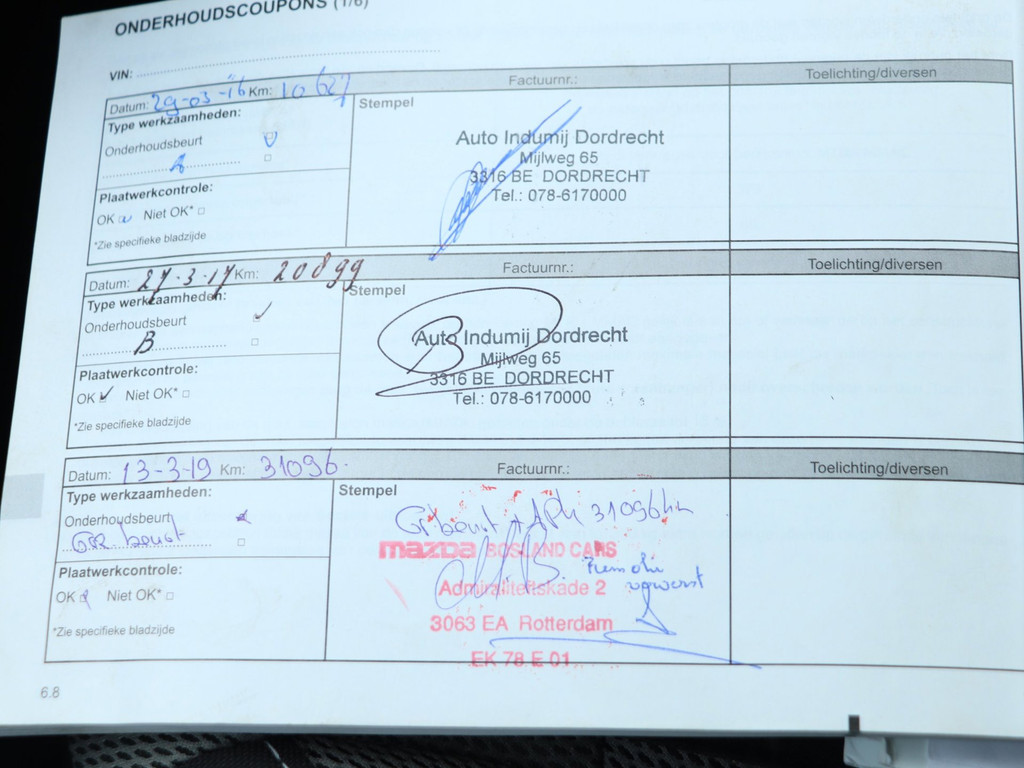 ONDERHOUDSCOUPONS (1/6)
VIN:
Datum: 29-03-16 Km: 10627 Factuurnr.: Toelichting/diversen
Type werkzaamheden: Stempel
Onderhoudsbeurt
A
Auto Indumij Dordrecht
Mijlweg 65
3316 BE DORDRECHT
Tel.: 078-6170000
Plaatwerkcontrole:
OK Niet OK*
*Zie specifieke bladzijde
Datum: 27-3-17 Km: 20899 Factuurnr.: Toelichting/diversen
Type werkzaamheden: Stempel
Onderhoudsbeurt
B
Auto Indumij Dordrecht
Mijlweg 65
3316 BE DORDRECHT
Tel.: 078-6170000
Plaatwerkcontrole:
OK Niet OK*
*Zie specifieke bladzijde
Datum: 13-3-19 Km: 31096. Factuurnr.: Toelichting/diversen
Type werkzaamheden: Stempel
Onderhoudsbeurt
beurt
beurt + APK 31096 km
mazda BOSLAND CARS
Admiraliteitskade 2
3063 EA Rotterdam
EK 78 E 01
Plaatwerkcontrole:
OK Niet OK*
*Zie specifieke bladzijde
6.8